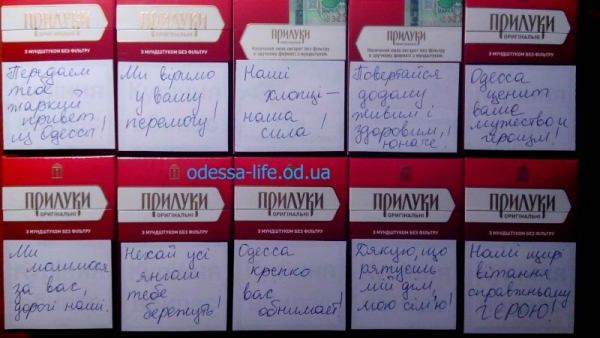 ПРИЛУКИ
ОРИГІНАЛЬНІ
З МУНДШТУКОМ БЕЗ ФІЛЬТРУ
Передаем
тебе
жаркий
привет
из Одессы!
ПРИЛУКИ
ОРИГІНАЛЬНІ
З МУНДШТУКОМ БЕЗ ФІЛЬТРУ
Ми віримо
у вашу
перемогу!
ПРИЛУКИ
ОРИГІНАЛЬНІ
Насичений смак сигарет без фільтру
в зручному форматі з мундштуком
Наші
хлопці —
наша
сила!
ПРИЛУКИ
ОРИГІНАЛЬНІ
Насичений смак сигарет без фільтру
в зручному форматі з мундштуком
Повертайся
додому
живим і
здоровим,
юначе!
ПРИЛУКИ
ОРИГІНАЛЬНІ
З МУНДШТУКОМ БЕЗ ФІЛЬТРУ
Одесса
ценит
ваше
мужество и
героизм!
odessa-life.od.ua
ПРИЛУКИ
ОРИГІНАЛЬНІ
З МУНДШТУКОМ БЕЗ ФІЛЬТРУ
Ми
молимося
за вас,
дорогі наші.
ПРИЛУКИ
ОРИГІНАЛЬНІ
З МУНДШТУКОМ БЕЗ ФІЛЬТРУ
Нехай усі
янголи
тебе
бережуть!
ПРИЛУКИ
ОРИГІНАЛЬНІ
З МУНДШТУКОМ БЕЗ ФІЛЬТРУ
Одесса
крепко
вас
обнимает!
ПРИЛУКИ
ОРИГІНАЛЬНІ
З МУНДШТУКОМ БЕЗ ФІЛЬТРУ
Дякую, що
рятуєшь
мій дім,
мою сім'ю!
ПРИЛУКИ
ОРИГІНАЛЬНІ
З МУНДШТУКОМ БЕЗ ФІЛЬТРУ
Наші щирі
вітання
справжньому
ГЕРОЮ!